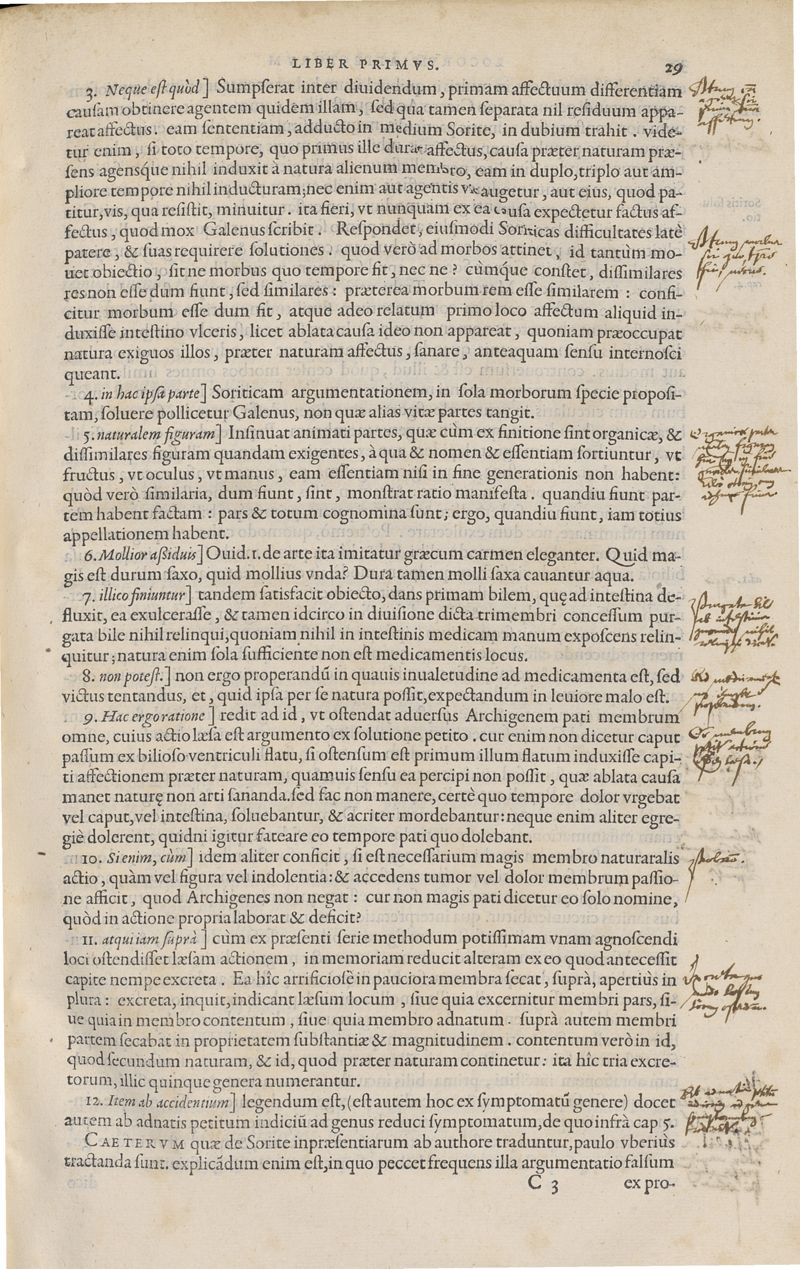 LIBER PRIMVS. 29
3. Neque est quòd] Sumpserat inter diuidendum, primam affectuum differentiam
causam obtinere agentem quidem illam, sed qua tamen separata nil residuum appa-
reat affectus. eam sententiam, adducto in medium Sorite, in dubium trahit. vide-
tur enim, si toto tempore, quo primus ille durat affectus, causa præter naturam præ-
sens agensq́ue nihil induxit à natura alienum membro, eam in duplo, triplo aut am-
pliore tempore nihil inducturam; nec enim aut agentis vis augetur, aut eius, quod pa-
titur, vis, qua resistit, minuitur. ita fieri, vt nunquam ex ea causa expectetur factus af-
fectus, quod mox Galenus scribit. Respondet, eiusmodi Soriticas difficultates latè
patere, & suas requirere solutiones. quod verò ad morbos attinet, id tantùm mo-
uet obiectio, sit ne morbus quo tempore fit, nec ne? cùmque constet, dissimilares
res non esse dum fiunt, sed similares: præterea morbum rem esse similarem: confi-
citur morbum esse dum fit, atque adeo relatum primo loco affectum aliquid in-
duxisse intestino vlceris, licet ablata causa ideo non appareat, quoniam præoccupat
natura exiguos illos, præter naturam affectus, sanare, anteaquam sensu internosci
queant.
4. in hac ipsa parte] Soriticam argumentationem, in sola morborum specie proposi-
tam, soluere pollicetur Galenus, non quæ alias vitæ partes tangit.
5. naturalem figuram] Insinuat animati partes, quæ cùm ex finitione sint organicæ, &
dissimilares figuram quandam exigentes, à qua & nomen & essentiam sortiuntur, vt
fructus, vt oculus, vt manus, eam essentiam nisi in fine generationis non habent:
quòd verò similaria, dum fiunt, sint, monstrat ratio manifesta. quandiu fiunt par-
tem habent factam: pars & totum cognomina sunt; ergo, quandiu fiunt, iam totius
appellationem habent.
6. Mollior aßiduis] Ouid. 1. de arte ita imitatur græcum carmen eleganter. Quid ma-
gis est durum saxo, quid mollius vnda? Dura tamen molli saxa cauantur aqua.
7. illico finiuntur] tandem satisfacit obiecto, dans primam bilem, quę ad intestina de-
fluxit, ea exulcerasse, & tamen idcirco in diuisione dicta trimembri concessum pur-
gata bile nihil relinqui, quoniam nihil in intestinis medicam manum exposcens relin-
quitur; natura enim sola sufficiente non est medicamentis locus.
8. non potest.] non ergo properandū in quauis inualetudine ad medicamenta est, sed
victus tentandus, et, quid ipsa per se natura possit, expectandum in leuiore malo est.
9. Hac ergo ratione] redit ad id, vt ostendat aduersus Archigenem pati membrum
omne, cuius actio læsa est argumento ex solutione petito. cur enim non dicetur caput
passum ex bilioso ventriculi flatu, si ostensum est primum illum flatum induxisse capi-
ti affectionem præter naturam, quamuis sensu ea percipi non possit, quæ ablata causa
manet naturę non arti sananda. sed fac non manere, certè quo tempore dolor vrgebat
vel caput, vel intestina, soluebantur, & acriter mordebantur: neque enim aliter egre-
giè dolerent, quidni igitur fateare eo tempore pati quo dolebant.
10. Si enim, cùm] idem aliter conficit, si est necessarium magis membro naturaralis
actio, quàm vel figura vel indolentia: & accedens tumor vel dolor membrum passio-
ne afficit, quod Archigenes non negat: cur non magis pati dicetur eo solo nomine,
quòd in actione propria laborat & deficit?
11. atqui iam suprà] cùm ex præsenti serie methodum potissimam vnam agnoscendi
loci ostendisset læsam actionem, in memoriam reducit alteram ex eo quod antecessit
capite nempe excreta. Ea hîc arrificiosè in pauciora membra secat, suprà, apertiùs in
plura: excreta, inquit, indicant læsum locum, siue quia excernitur membri pars, si-
ue quia in membro contentum, siue quia membro adnatum. suprà autem membri
partem secabat in proprietatem substantiæ & magnitudinem. contentum verò in id,
quod secundum naturam, & id, quod præter naturam continetur: ita hîc tria excre-
torum, illic quinque genera numerantur.
12. Item ab accidentium] legendum est, (est autem hoc ex symptomatū genere) docet
autem ab adnatis petitum indiciū ad genus reduci symptomatum, de quo infrà cap 5.
CAETERVM quæ de Sorite inpræsentiarum ab authore traduntur, paulo vberiùs
tractanda sunt. explicãdum enim est, in quo peccet frequens illa argumentatio falsum
C 3 ex pro-